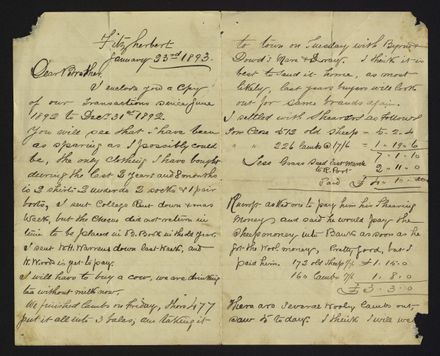 Fitzherbert
January 23rd 1893.
Dear Brother,
I enclose you a Copy
of our transactions since June
1892 to Decr 31st 1892.
You will see that I have been
as sparing as I possibly could
be, the only clothing I have bought
during the last 2 years and 8 months
is 2 shirts 2 2 socks & 1 pair
boots, I sent College Rent down xmas
Week, but the Cheque did not return in
time to be placed in B. Book in the old year.
I sent W.H. Warrens down last Week, and
H. Woods is yet to pay.
I will have to buy a cow, we are drinking
tea without milk now.
We finished lambs on friday, Shore 477
put it all into 3 bales, am taking it
to town on Tuesday with Byron &
Dowd's Mare & Dray. I think it is
best to send it home, as most
likely, last years buyers will look
out for same brands again.
I settled with Shearers as follows
For Case 673 old sheep = 5-2-4
" " 226 lambs @ 17/6 = 1-19-6
7-1-10
Less Grass Seed last March
to R. Port 2-11-0
Paid £4-10-
Ramp asked me to pay him his Shearing
Money and said he would pay the
sheepmoney into Bank as soon as he
got his Wool money, Pretty good, but I
paid him. 173 old sheep £1.15.0
160 lambs 1.8.0
£3-3.0
There are several Wooly lambs out
saw 5 to day. I think I will we